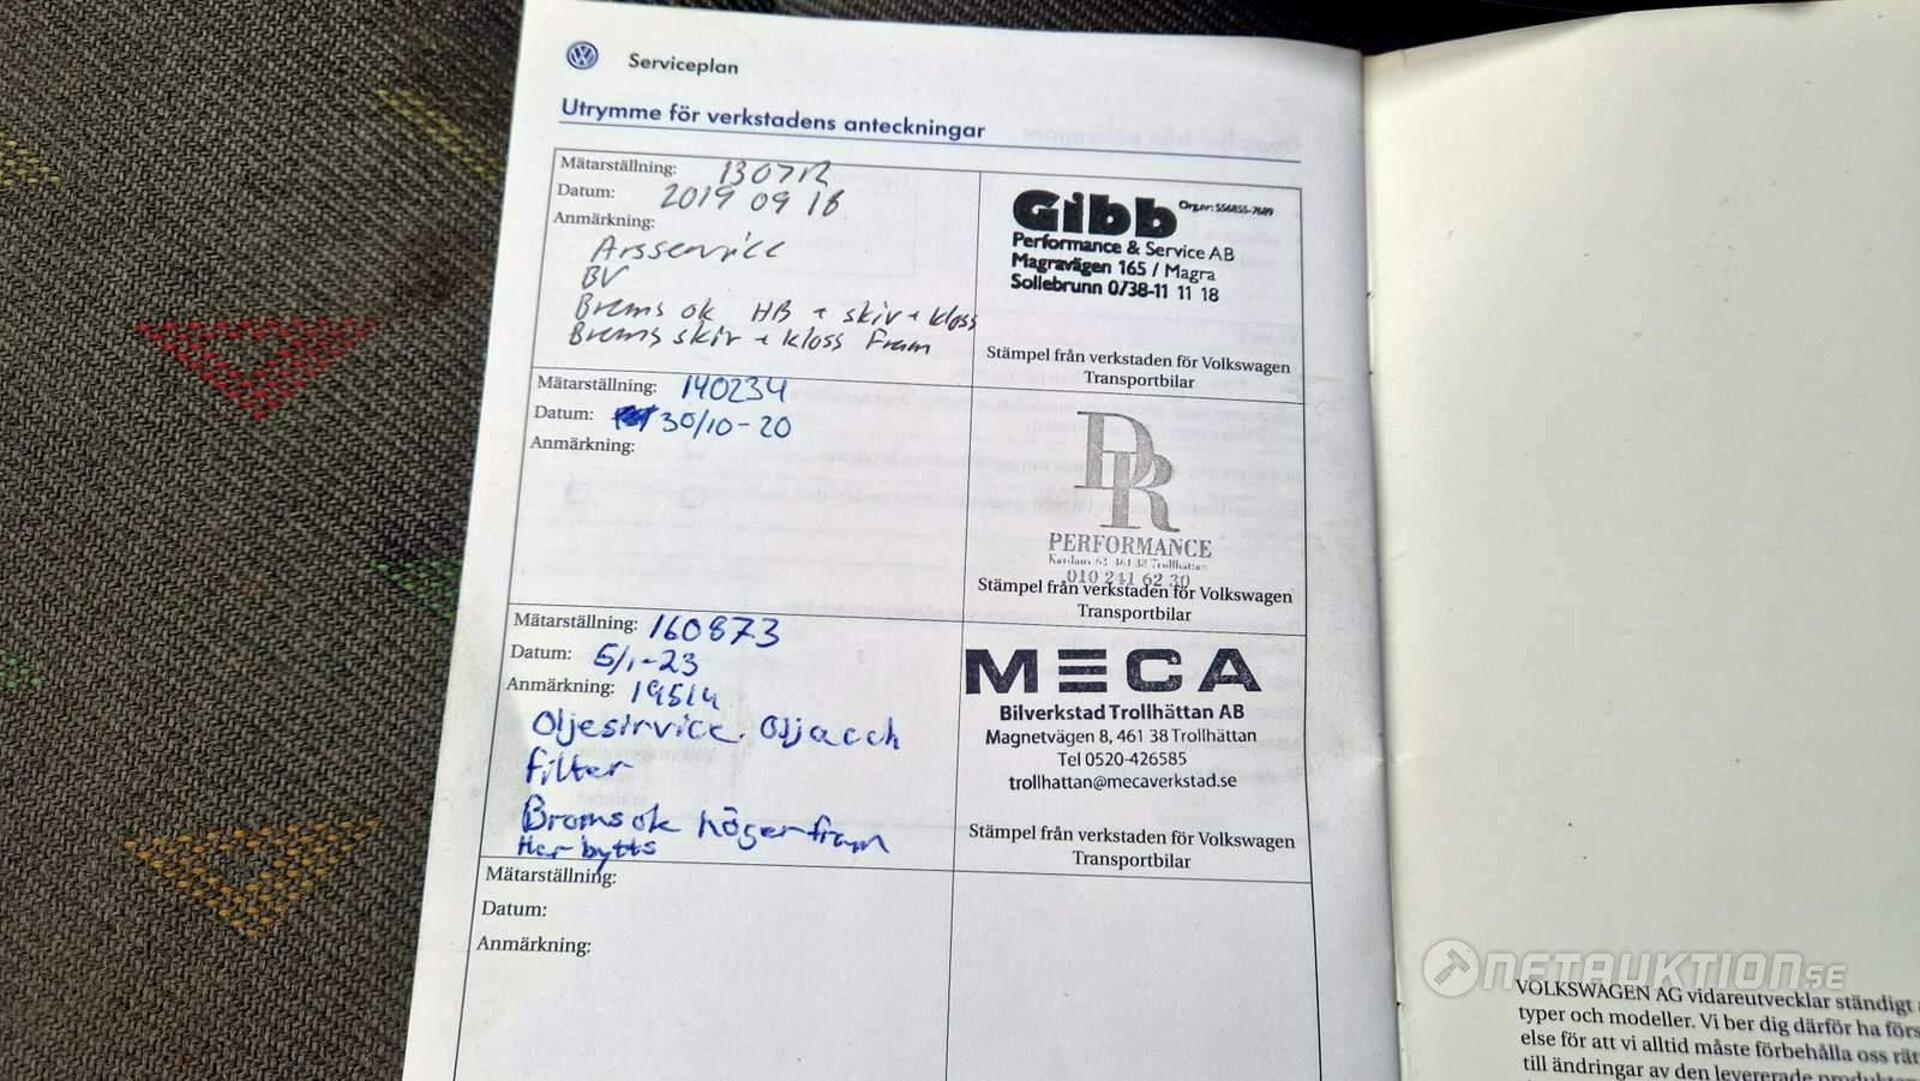 Serviceplan
Utrymme för verkstadens anteckningar
Mätarställning:
Datum: 2019 09 18
Anmärkning:
Arsservice
BV
Broms ok HB + skiv + kloss
Broms skiv + kloss Fram
Gibb Org.nr: 556855-7689
Performance & Service AB
Magravägen 165 / Magra
Sollebrunn 0738-11 11 18
Stämpel från verkstaden för Volkswagen
Transportbilar
Mätarställning: 140234
Datum: 30/10-20
Anmärkning:
DR
PERFORMANCE
461 38 Trollhättan
010 241 62 30
Stämpel från verkstaden för Volkswagen
Transportbilar
Mätarställning: 160873
Datum: 5/1-23
Anmärkning: 19514
Oljeservice. Olja och
filter
Bromsok höger fram
Har bytts
MECA
Bilverkstad Trollhättan AB
Magnetvägen 8, 461 38 Trollhättan
Tel 0520-426585
trollhattan@mecaverkstad.se
Stämpel från verkstaden för Volkswagen
Transportbilar
Mätarställning:
Datum:
Anmärkning:
NETAUKTION.SE
VOLKSWAGEN AG vidareutvecklar ständigt
typer och modeller. Vi ber dig därför ha förs
else för att vi alltid måste förbehålla oss rät
till ändringar av den levererade